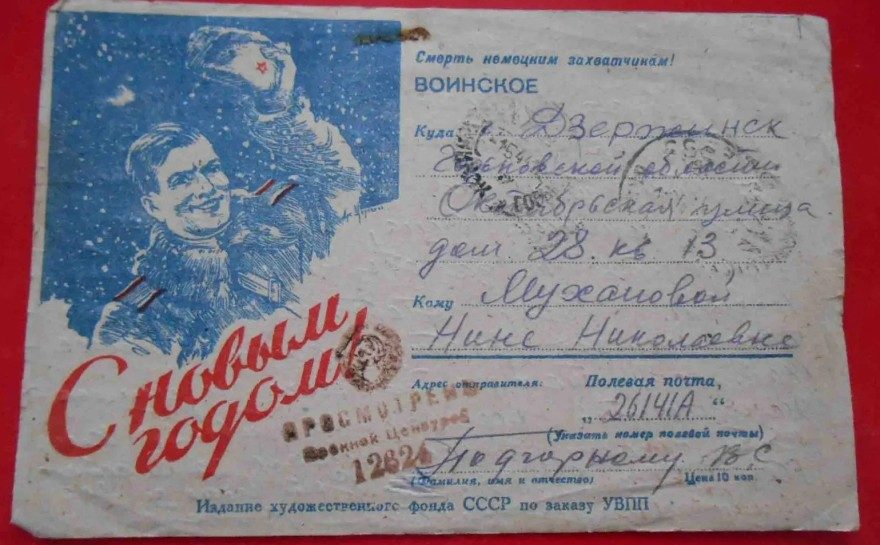 Смерть немецким захватчикам!
ВОИНСКОЕ
Куда г. Дзержинск
Горьковской области
Октябрьская улица
дом 28. кв 13
Кому Мухановой
Нине Николаевне
С новым
годом!
Адрес отправителя: Полевая почта,
„ 26141А “
(Указать номер полевой почты)
ПРОСМОТРЕНО
Военной Цензурой
12824
Подгорному В С
(Фамилия, имя и отчество) Цена 10 коп.
Издание художественного фонда СССР по заказу УВПП